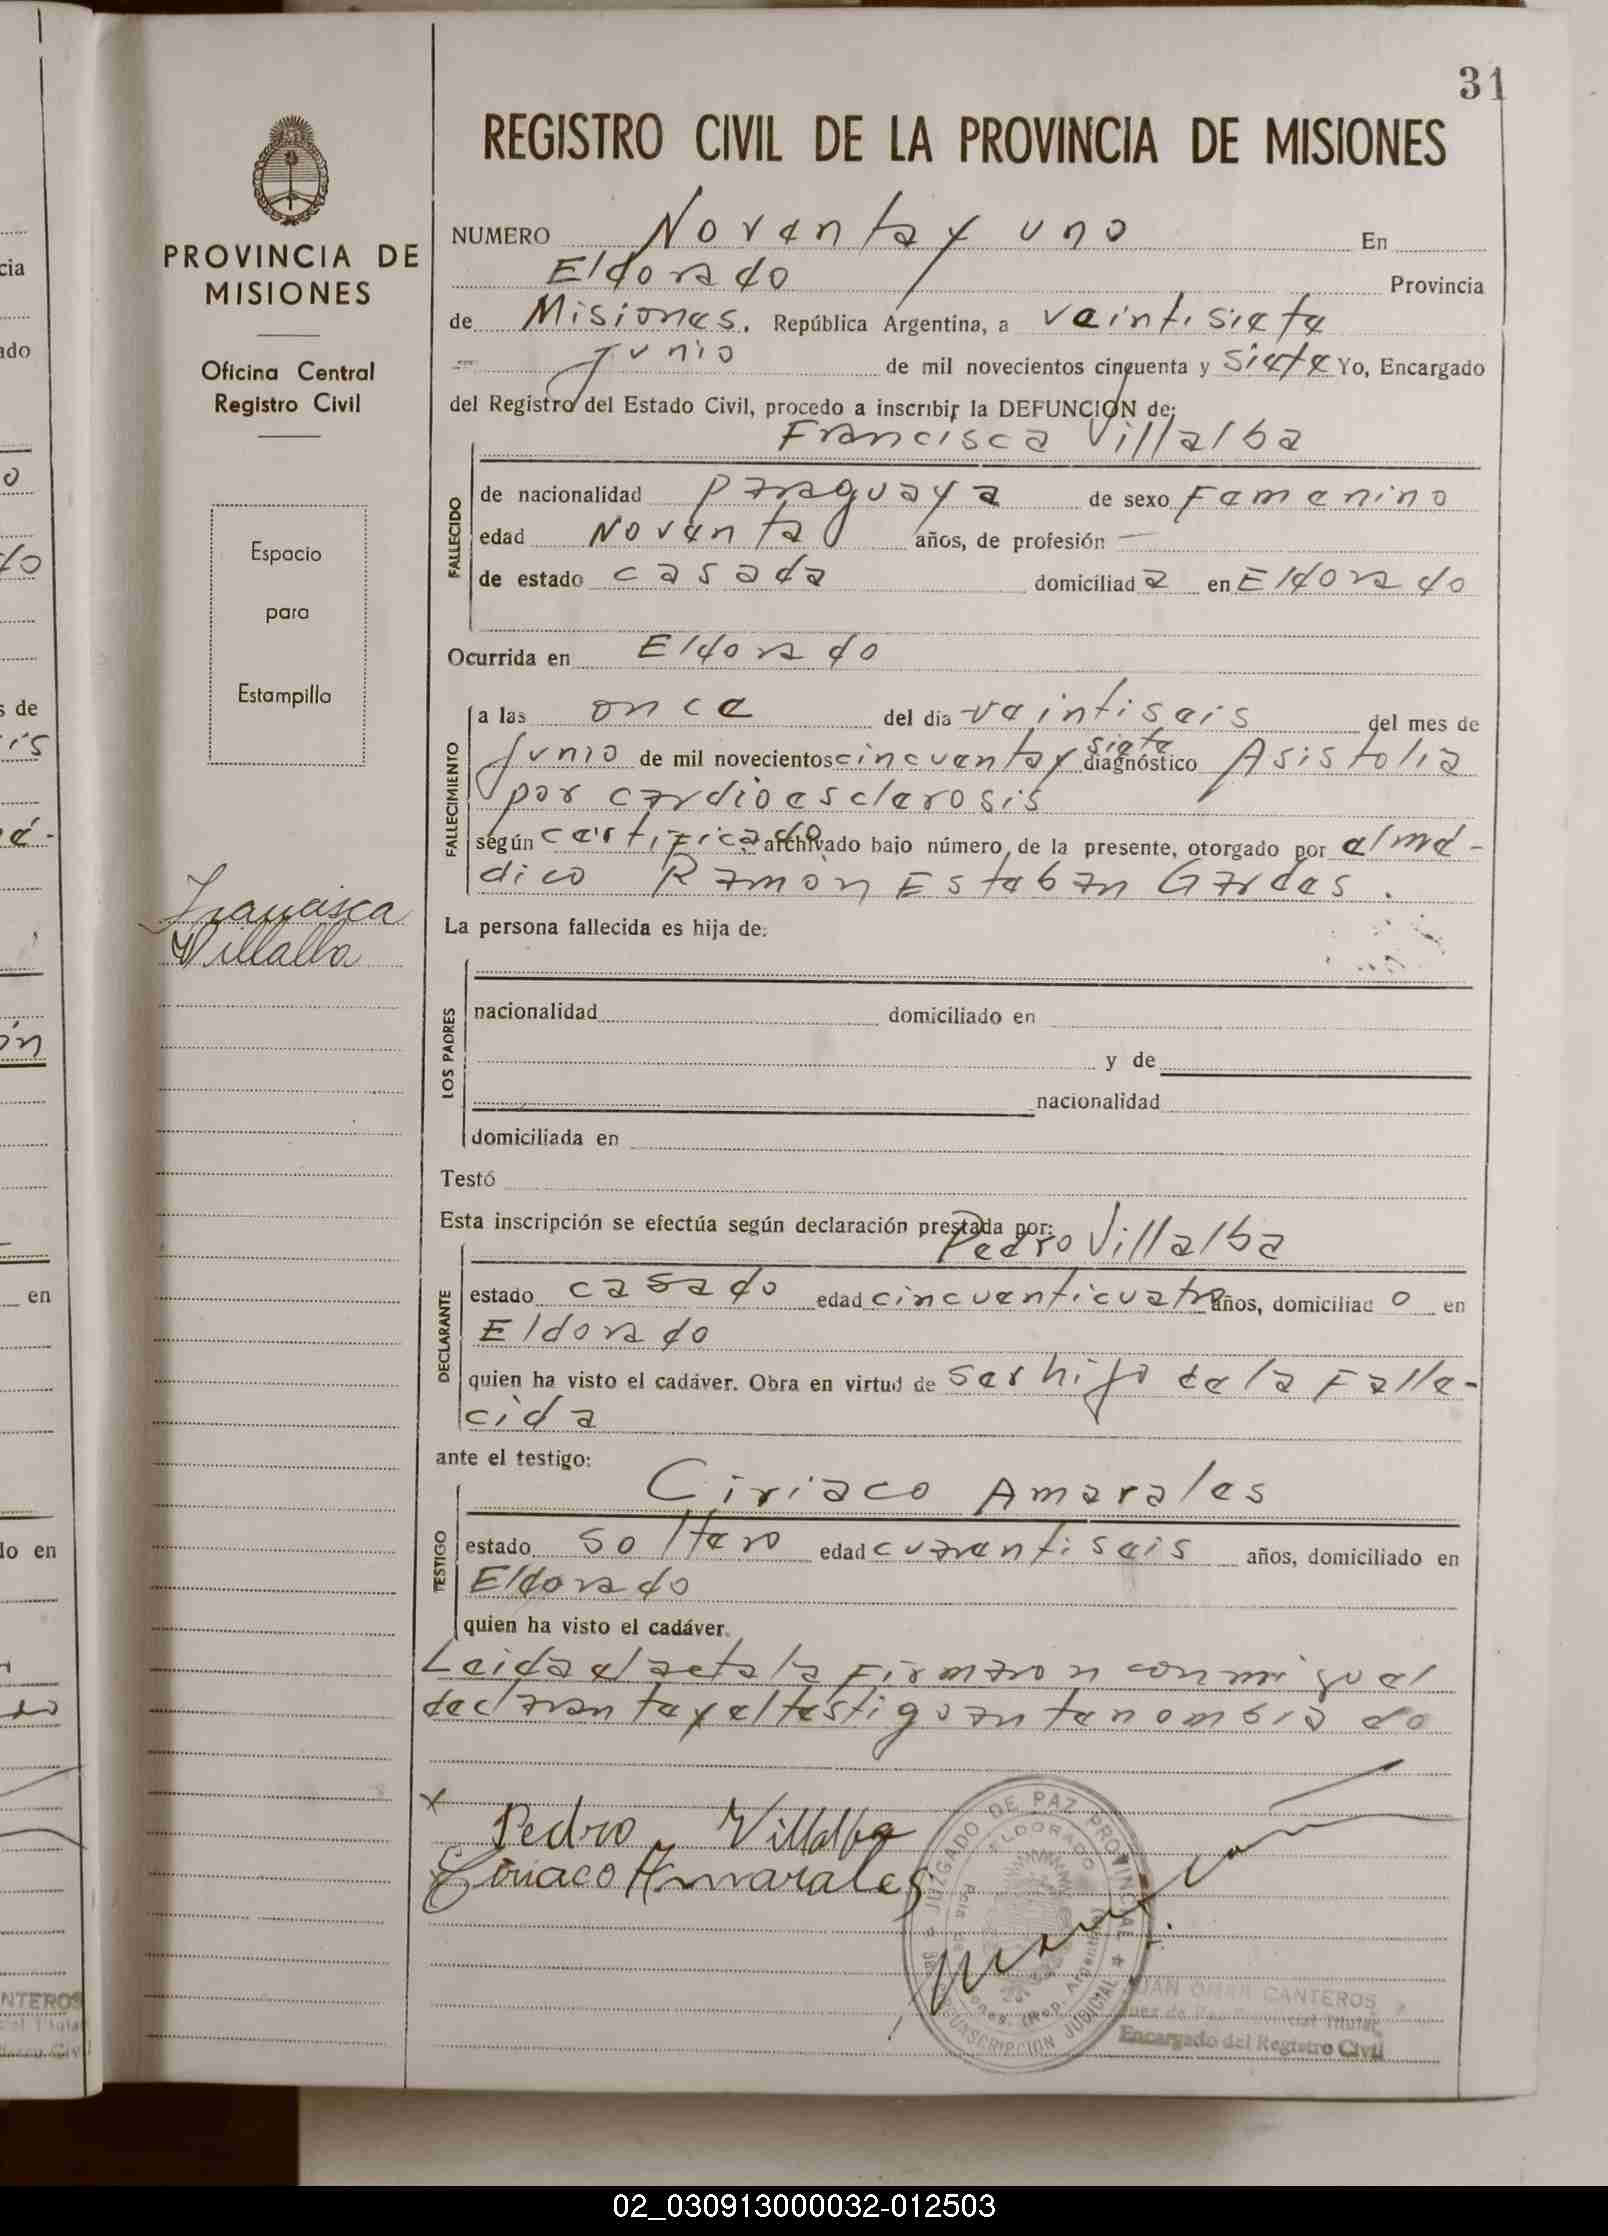 31
REGISTRO CIVIL DE LA PROVINCIA DE MISIONES
PROVINCIA DE
MISIONES
Oficina Central
Registro Civil
Espacio
para
Estampilla
Francisca
Villalba
NUMERO Noventa y uno En
Eldorado Provincia
de Misiones. República Argentina, a veintisiete
junio de mil novecientos cincuenta y siete Yo, Encargado
del Registro del Estado Civil, procedo a inscribir la DEFUNCION de:
Francisca Villalba
FALLECIDO
de nacionalidad paraguaya de sexo Femenino
edad Noventa años, de profesión —
de estado casada domiciliad a en Eldorado
Ocurrida en Eldorado
FALLECIMIENTO
a las once del dia veintiseis del mes de
junio de mil novecientos cincuenta y siete diagnóstico Asistolia
por cardioesclerosis
según certificado archivado bajo número, de la presente, otorgado por el mé-
dico Ramón Esteban Gardes.
La persona fallecida es hija de:
LOS PADRES
nacionalidad domiciliado en
y de
nacionalidad
domiciliada en
Testó
Esta inscripción se efectúa según declaración prestada por:
Pedro Villalba
DECLARANTE
estado casado edad cincuenticuatro años, domiciliad o en
Eldorado
quien ha visto el cadáver. Obra en virtud de ser hijo de la Falle-
cida
ante el testigo:
Ciriaco Amarales
TESTIGO
estado soltero edad cuarentiseis años, domiciliado en
Eldorado
quien ha visto el cadáver.
Leida el acta la Firmaron conmigo el
declarante y el testigo antenombrado
x Pedro Villalba
Ciriaco Amarales
JUZGADO DE PAZ PROVINCIAL
ELDORADO
(Rep. Argentina)
CIRCUNSCRIPCION JUDICIAL
JUAN OMAR CANTEROS
Juez de Paz Provincial Titular
Encargado del Registro Civil
02_030913000032-012503